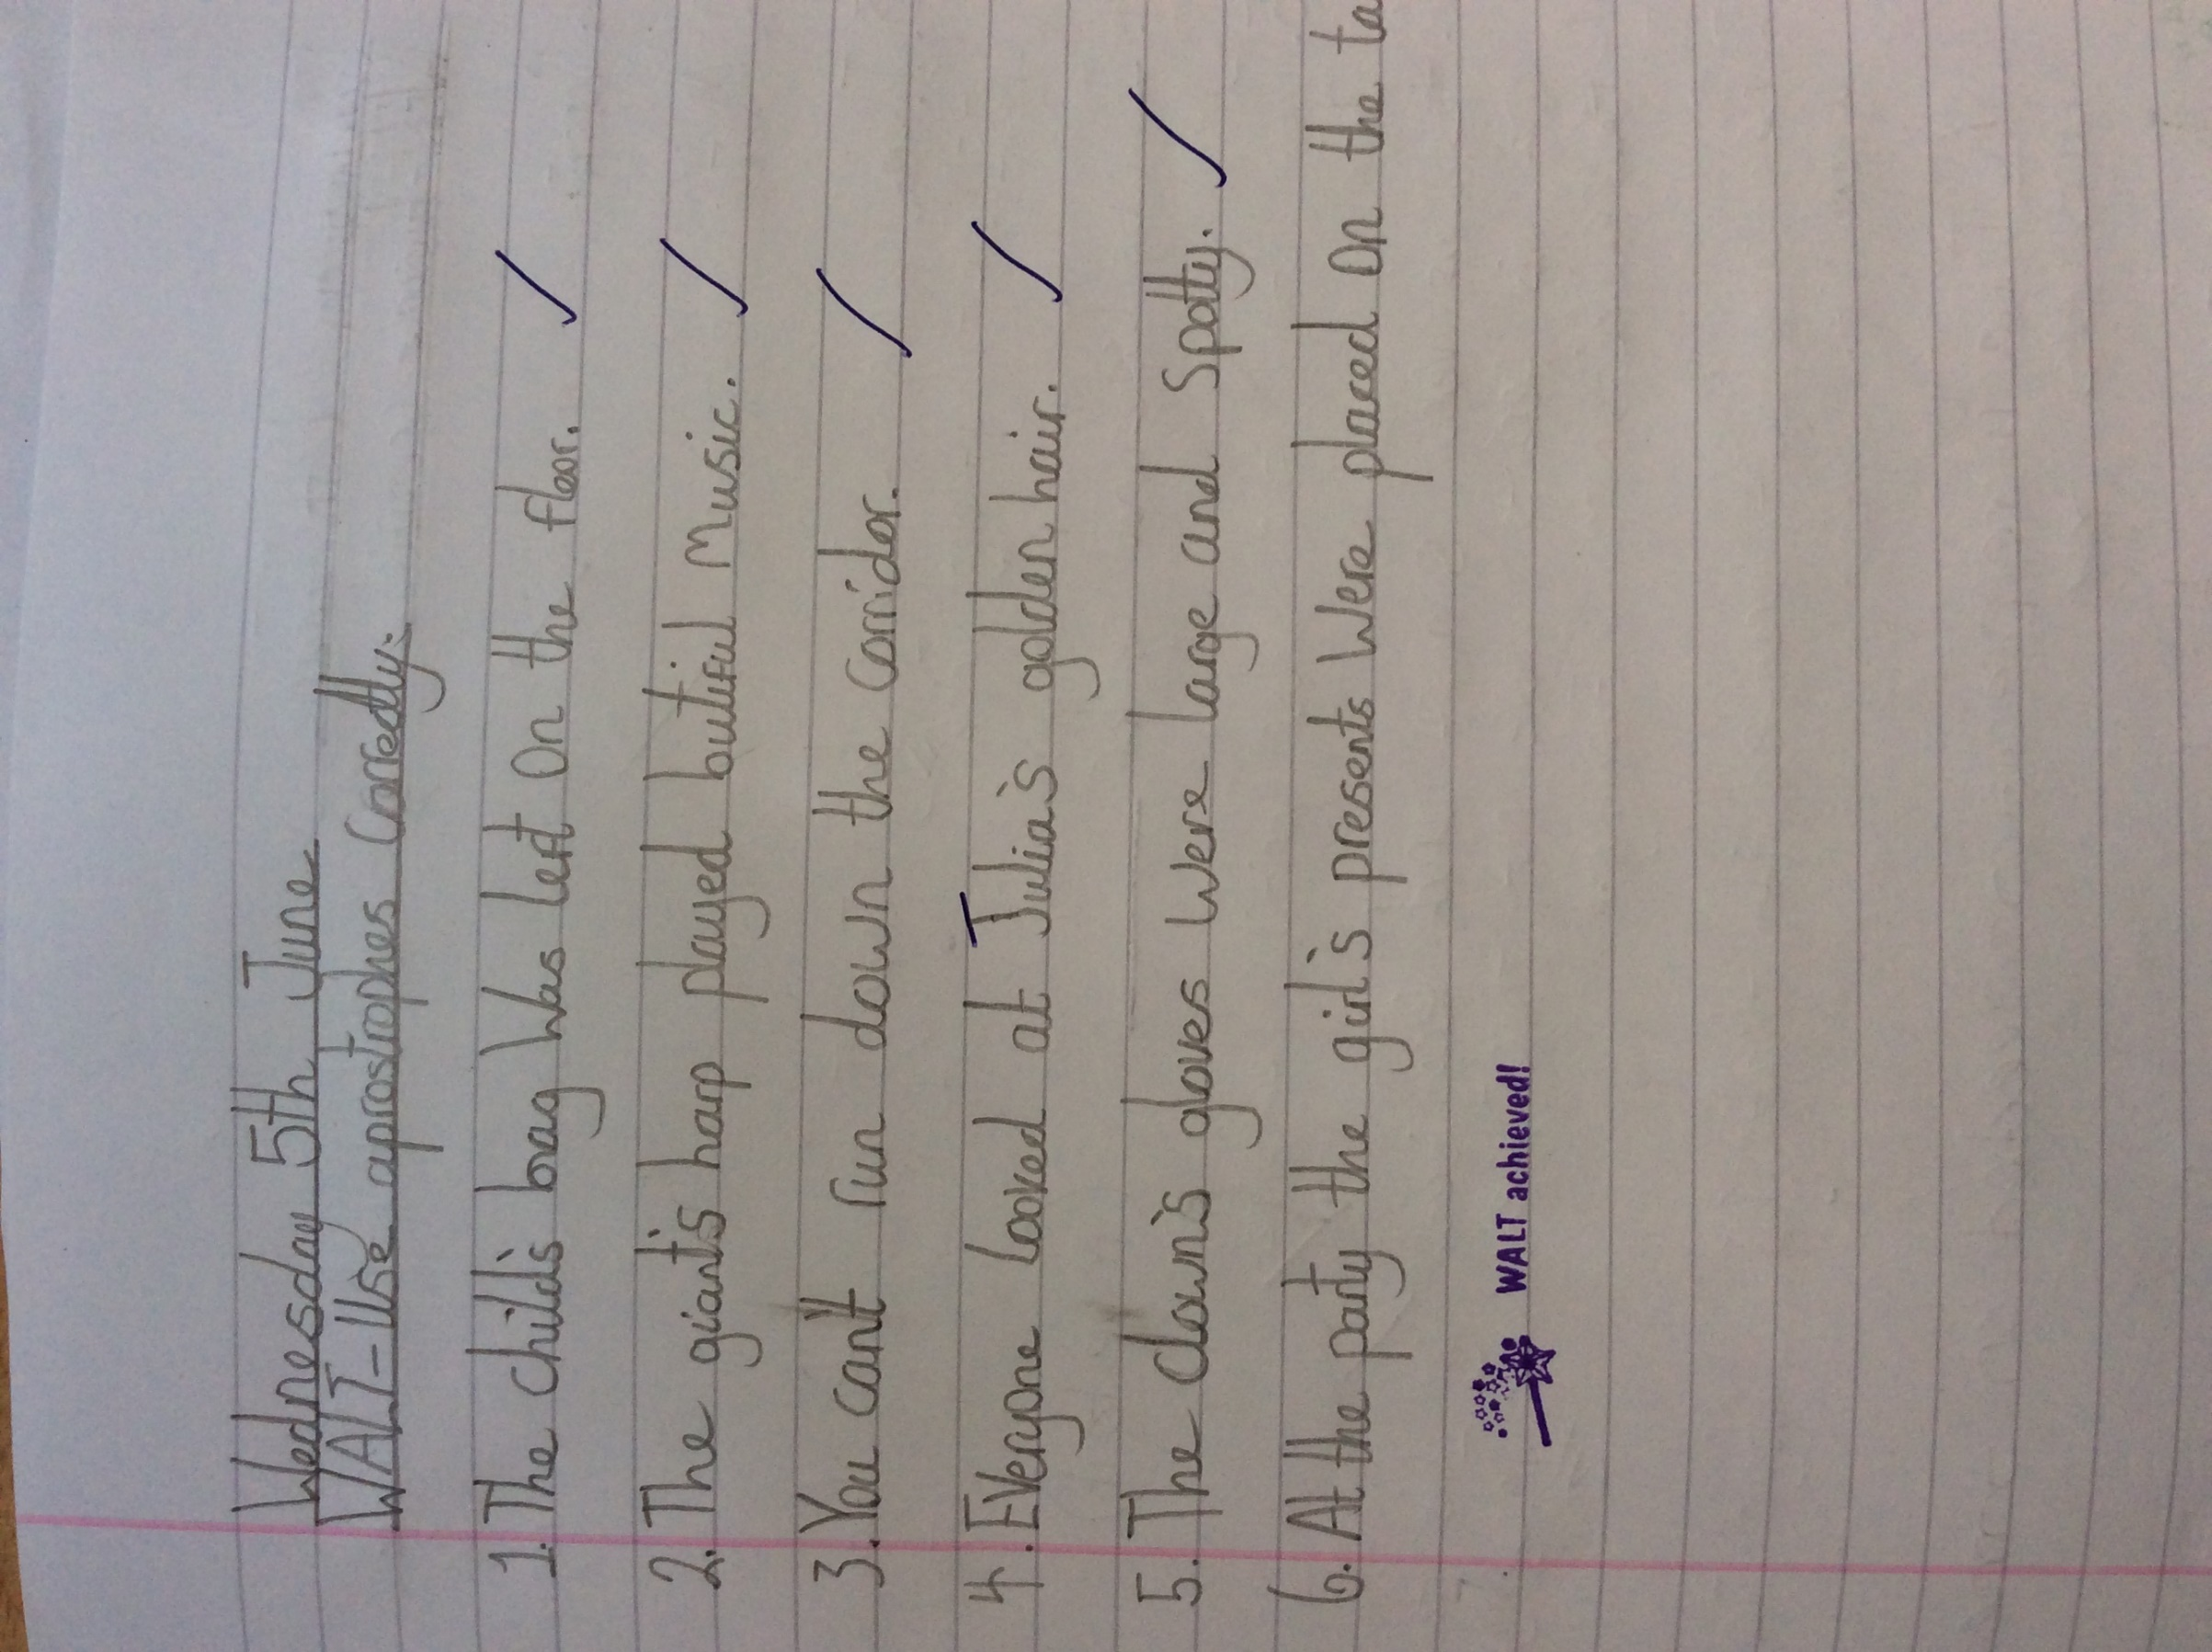 Wednesday 5th June
WALT-Use aprostrophes Correctly.
1. The child's bag Was left On the floor.
2. The giant's harp played butiful Music.
3. You can't run down the corridor.
4. Everyone Looked at Julia's golden hair.
5. The clown's gloves Were large and Spotty.
6. At the party the girl's presents Were placed On the ta
WALT achieved!